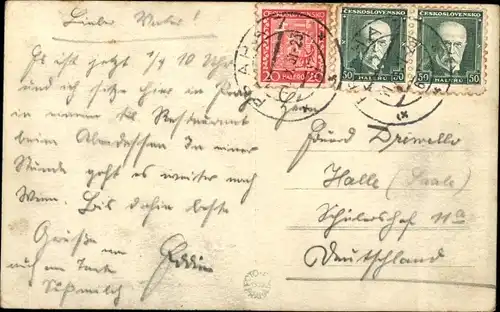 Lieber Vater!
Es ist jetzt 1/2 10 Uhr
und ich sitze hier in Prag
in einem Restaurant
beim Abendessen. In einer
Stunde geht es weiter nach
Wien. Bis dahin beste
Grüße von
auch an Tante
Süßmilch
ČESKOSLOVENSKO
20 HALÉŘŮ 20
ČESKOSLOVENSKO
50 HALÉŘŮ 50
ČESKOSLOVENSKO
50 HALÉŘŮ 50
PRAHA
Herrn
Eduard Driwello
Halle (Saale)
Schülershof 11a
Deutschland